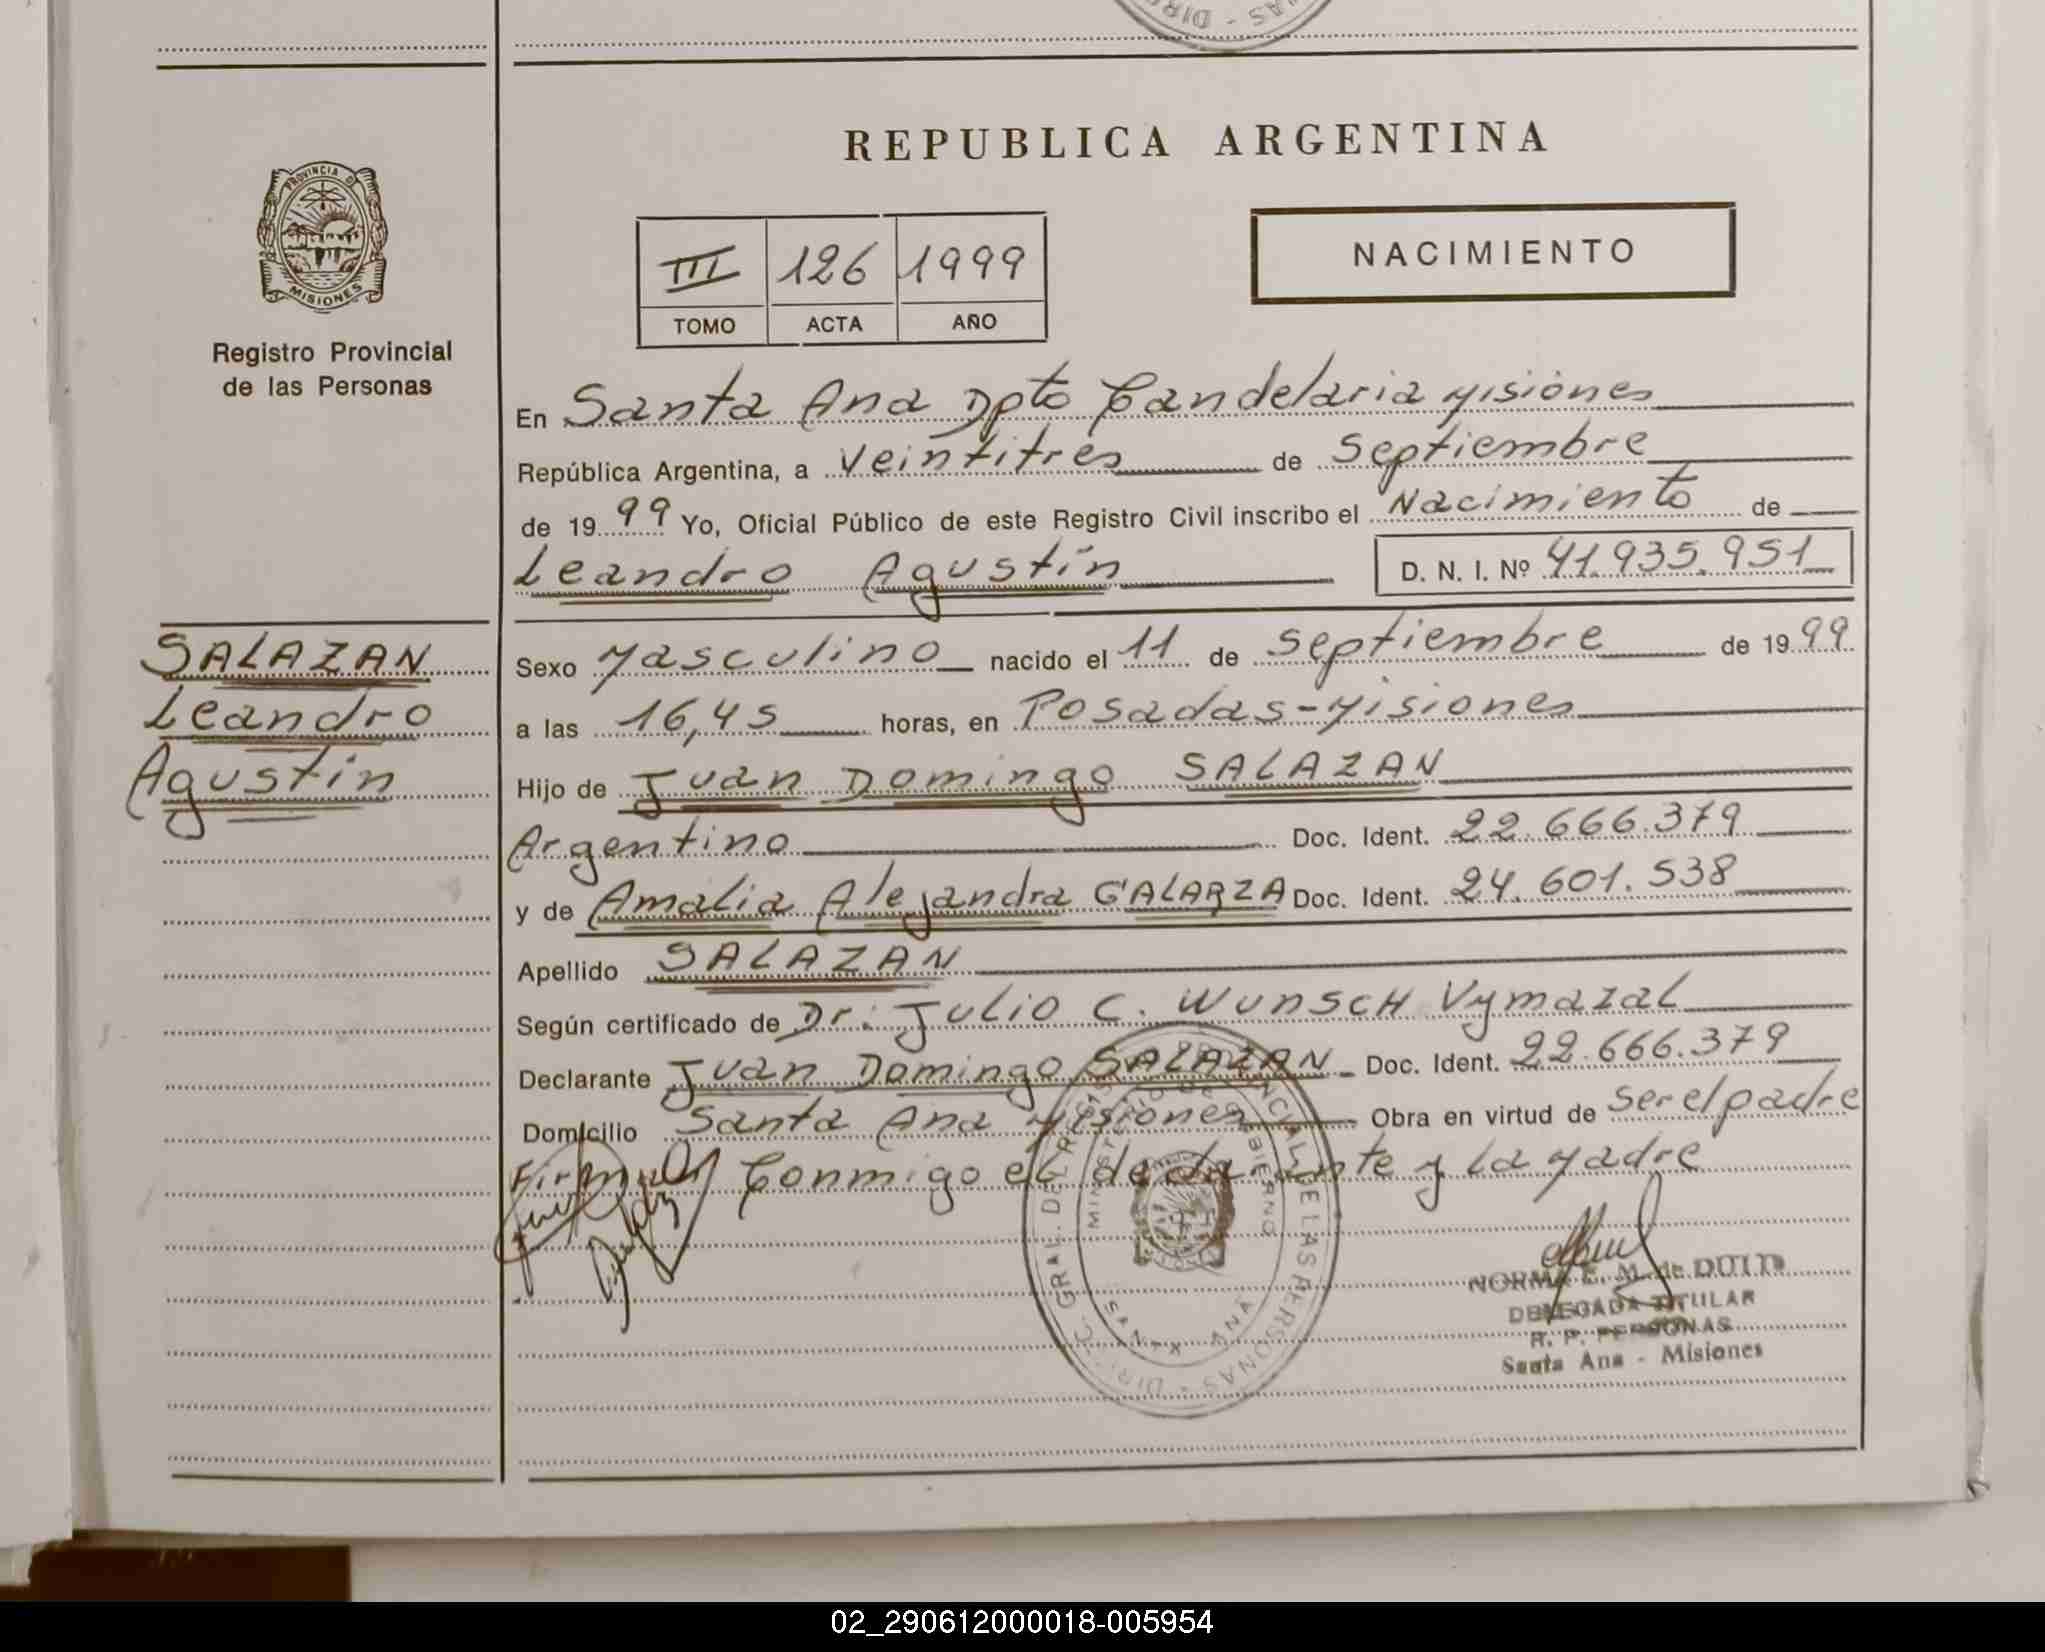 REPUBLICA ARGENTINA
PROVINCIA DE
MISIONES
Registro Provincial
de las Personas
III 126 1999
TOMO ACTA AÑO
NACIMIENTO
En Santa Ana Dpto Candelaria Misiones
República Argentina, a Veintitres de Septiembre
de 1999 Yo, Oficial Público de este Registro Civil inscribo el Nacimiento de
Leandro Agustín D. N. I. Nº 41.935.951
SALAZAN
Leandro
Agustín
Sexo Masculino nacido el 11 de Septiembre de 1999
a las 16,45 horas, en Posadas-Misiones
Hijo de Juan Domingo SALAZAN
Argentino Doc. Ident. 22.666.379
y de Amalia Alejandra GALARZA Doc. Ident. 24.601.538
Apellido SALAZAN
Según certificado de Dr. Julio C. WUNSCH Vymazal
Declarante Juan Domingo SALAZAN Doc. Ident. 22.666.379
Domicilio Santa Ana Misiones Obra en virtud de ser el padre
Firman Conmigo el declarante y la Madre
DIREC. GRAL. DEL REGISTRO PROVINCIAL DE LAS PERSONAS
MINISTERIO DE GOBIERNO
SANTA ANA
NORMA E. M. de
DELEGADA TITULAR
R. P. PERSONAS
Santa Ana - Misiones
02_290612000018-005954